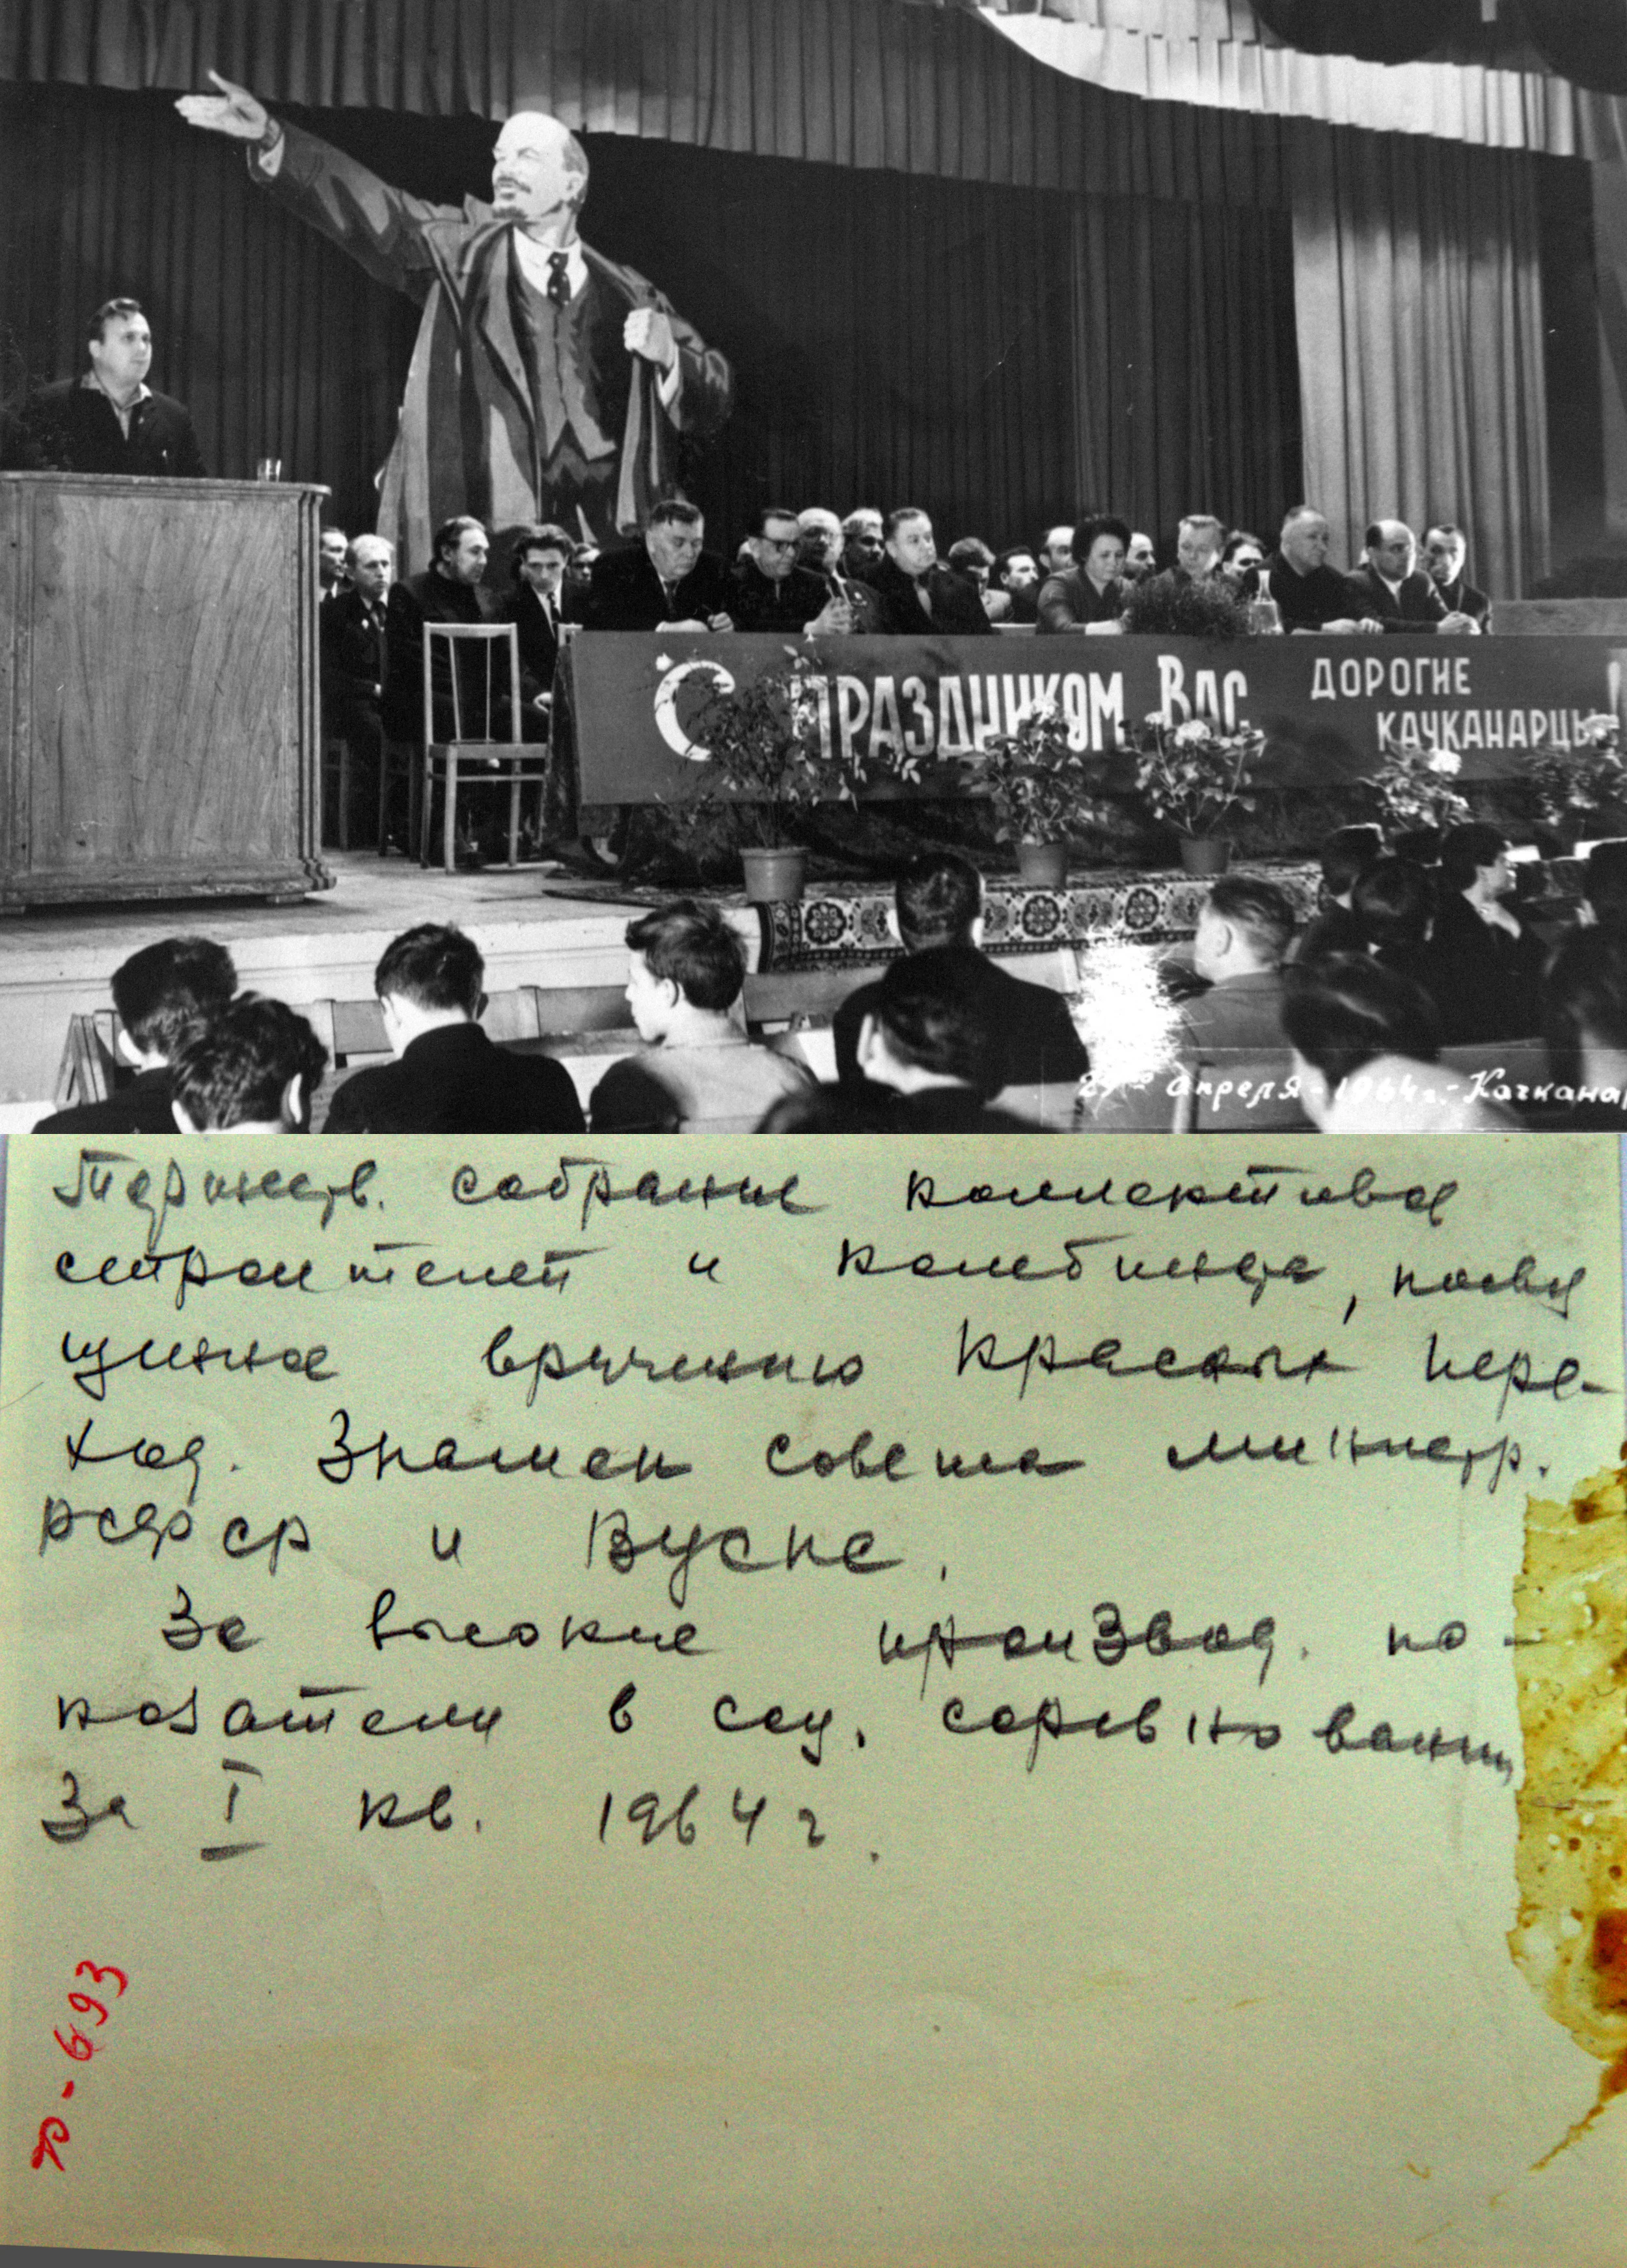 С ПРАЗДНИКОМ ВАС ДОРОГИЕ
КАЧКАНАРЦЫ!
апреля-1964г.-Качканар
Торжеств. собрание коллектива
строителей и комбината, посвя
щенное вручению Красных пере-
ход. Знамен совета министр.
РСФСР и ВЦСПС.
За высокие производ. по-
казатели в соц. соревновании
за I кв. 1964 г.
Р-693